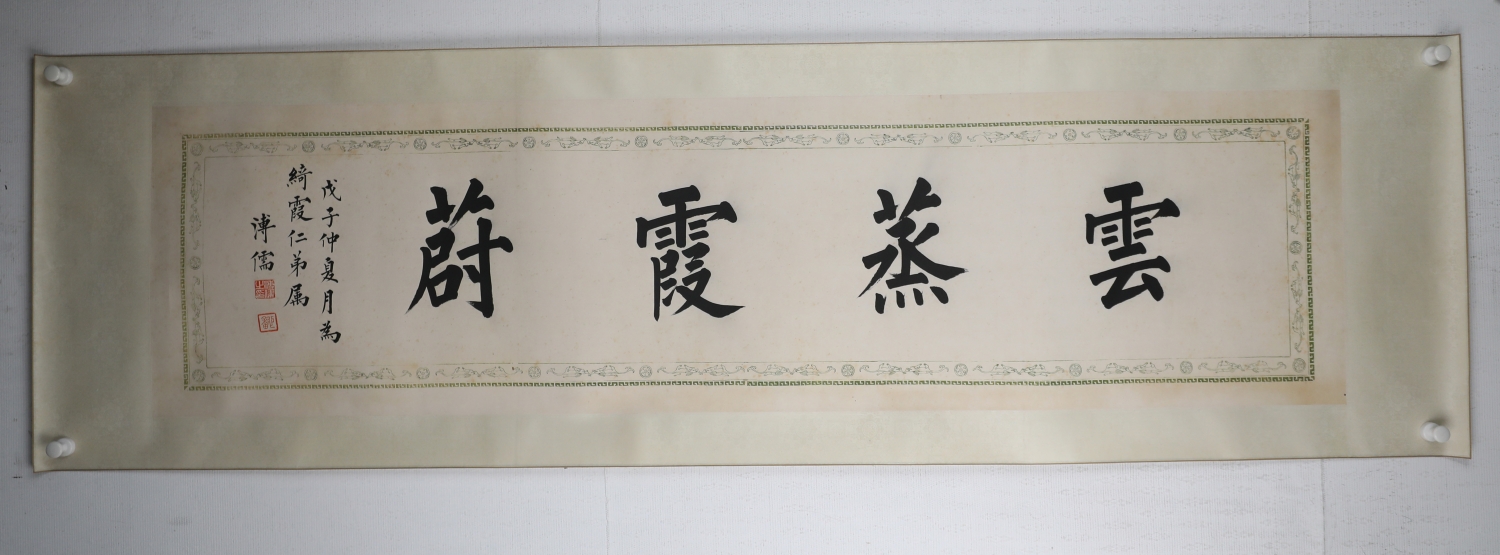 雲蒸霞蔚
戊子仲夏月為
綺霞仁弟属
溥儒